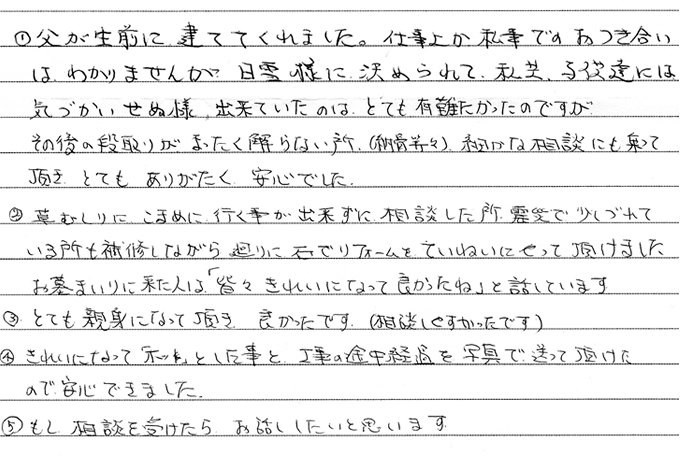 ①父が生前に建ててくれました。仕事上か私事でのおつき合い
はわかりませんが 日雲の様に決められて、私共、子供達には
気づかいせぬ様、出来ていたのは とても有難たかったのですが
その後の段取りがまったく解らない所、(納骨等々)、細かな相談にも乗って
頂き とても ありがたく 安心でした。
②草むしりに こまめに 行く事が出来ずに 相談した所 震災で少しづれて
いる所も補修しながら 廻りに石でリフォームをていねいにやって頂けました
お墓まいりに来た人は、「皆々 きれいになって良かったね」と話しています
③とても 親身になって頂き 良かったです (相談しやすかったです)
④きれいになって「ホッ」とした事と、工事の途中経過を写真で送って頂けた
ので安心できました。
⑤もし 相談を受けたら お話ししたいと思います